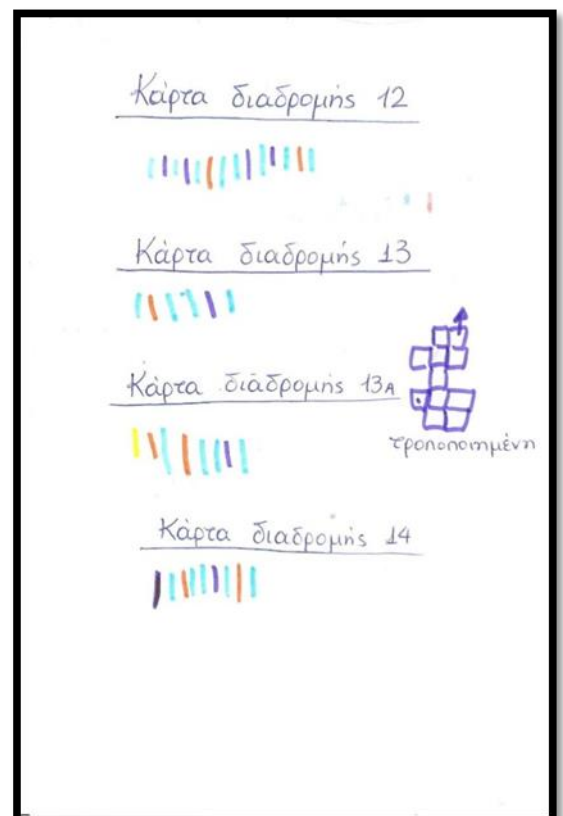 Κάρτα διαδρομής 12
Κάρτα διαδρομής 13
Κάρτα διαδρομής 13Α
τροποποιημένη
Κάρτα διαδρομής 14